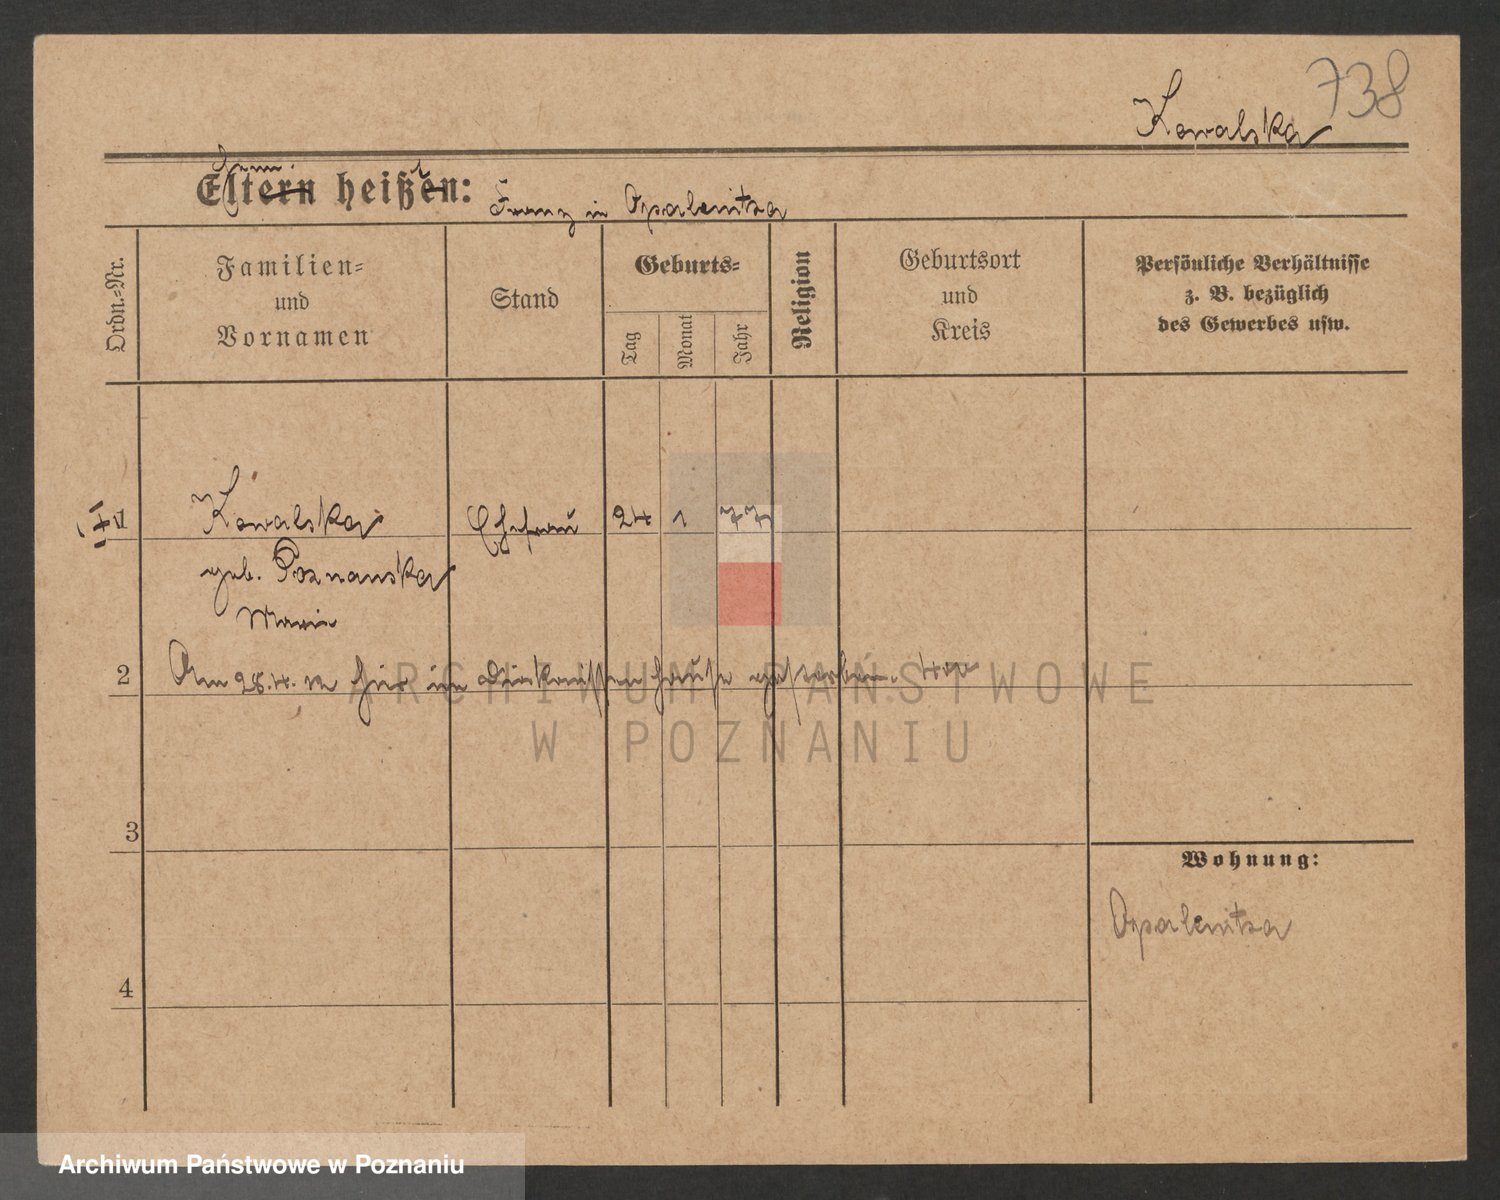 738
Kowalska
Eltern heißen: Franz in Opalenitza
Ordn.-Nr.
Familien-
und
Vornamen
Stand
Geburts-
Tag
Monat
Jahr
Religion
Geburtsort
und
Kreis
Persönliche Verhältnisse
z. B. bezüglich
des Gewerbes usw.
1 Kowalska Ehefrau 24 1 77
geb. Poznanska
Marie
2 Am 28.4. 12 hier im Diakonissenhause gestorben.
ARCHIWUM PAŃSTWOWE
W POZNANIU
3
Wohnung:
Opalenitza
4
Archiwum Państwowe w Poznaniu